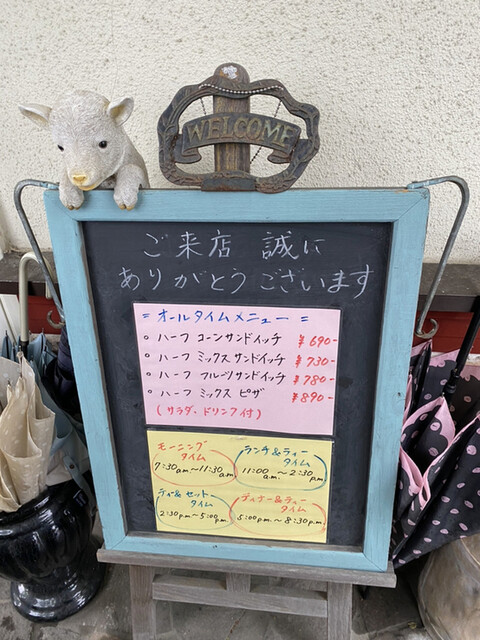 WELCOME
ご来店 誠に
ありがとうございます
= オールタイムメニュー =
○ ハーフ コーンサンドイッチ ¥690-
○ ハーフ ミックスサンドイッチ ¥730-
○ ハーフ フルーツサンドイッチ ¥780-
○ ハーフ ミックス ピザ ¥890-
(サラダ、ドリンク付)
モーニング
タイム
7:30am〜11:30a.m
ランチ&ティー
タイム
11:00a.m〜2:30p.m
ティ&セット
タイム
2:30p.m〜5:00p.m
ディナー&ティー
タイム
5:00p.m〜8:30p.m